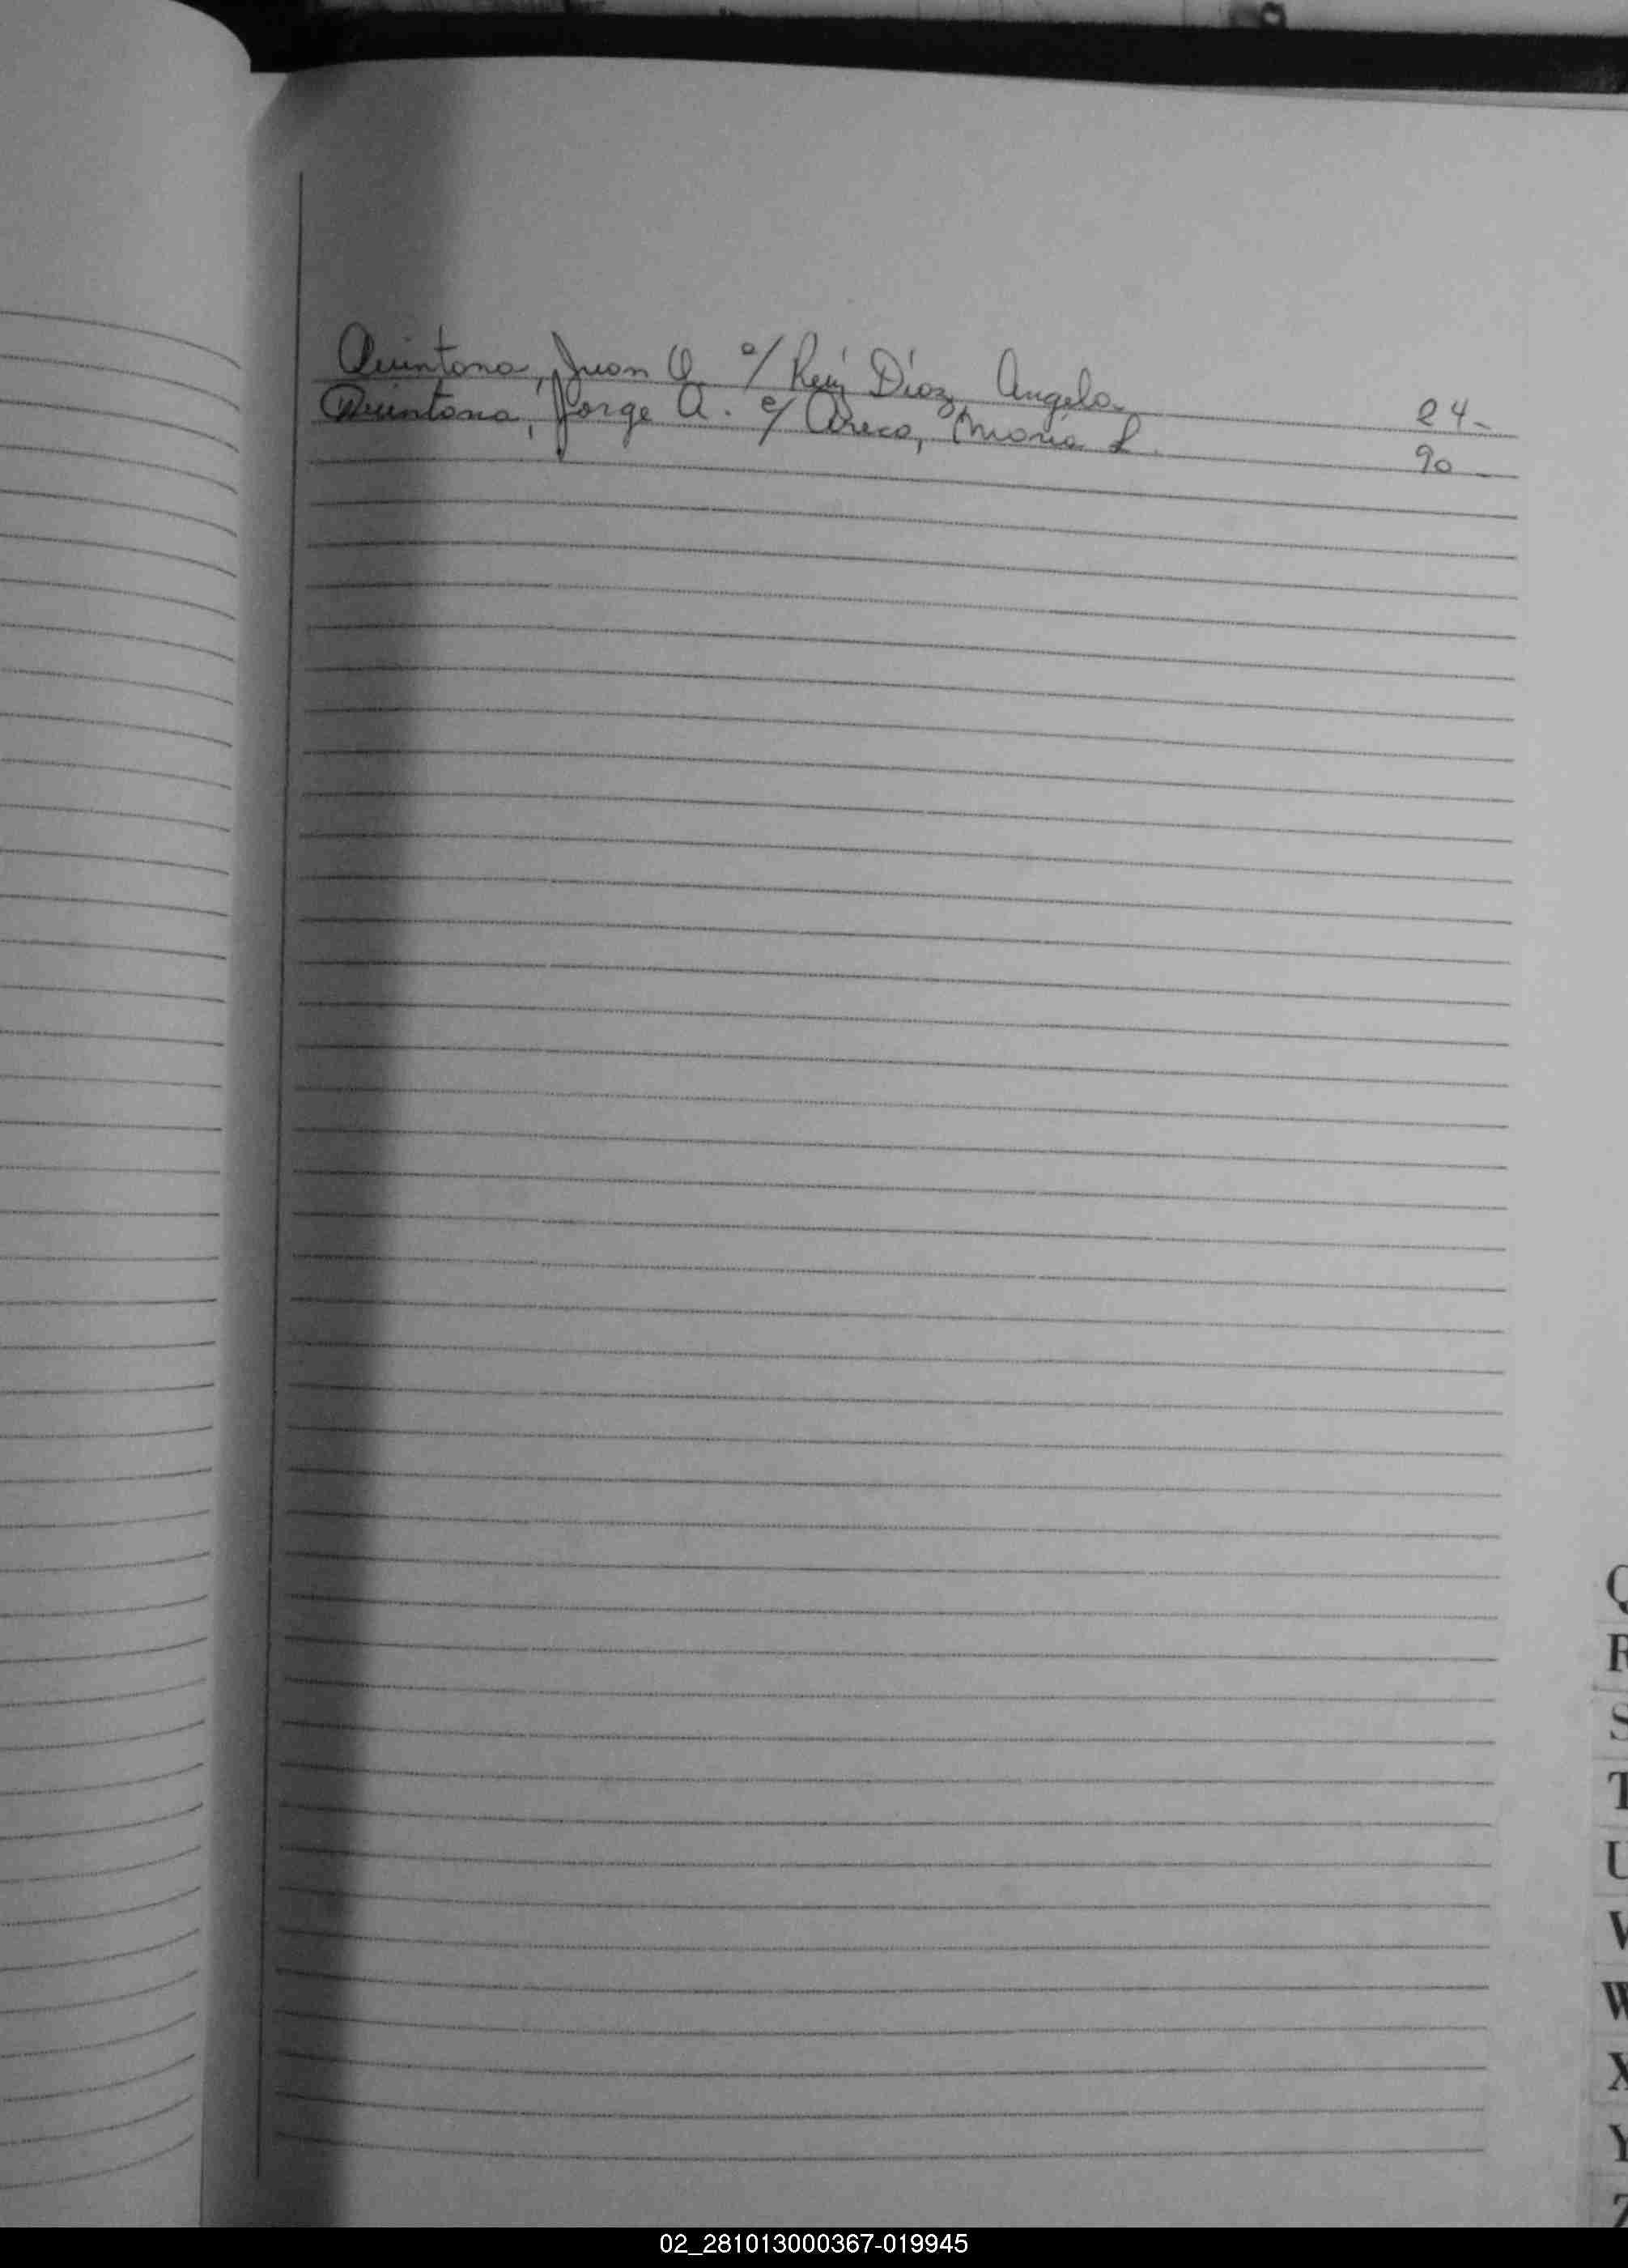 Quintana, Juan O. c/ Ruiz Díaz, Angela 24-
Quintana, Jorge A. c/ Areco, María L. 90-
Q
R
S
T
U
V
W
X
Y
Z
02_281013000367-019945